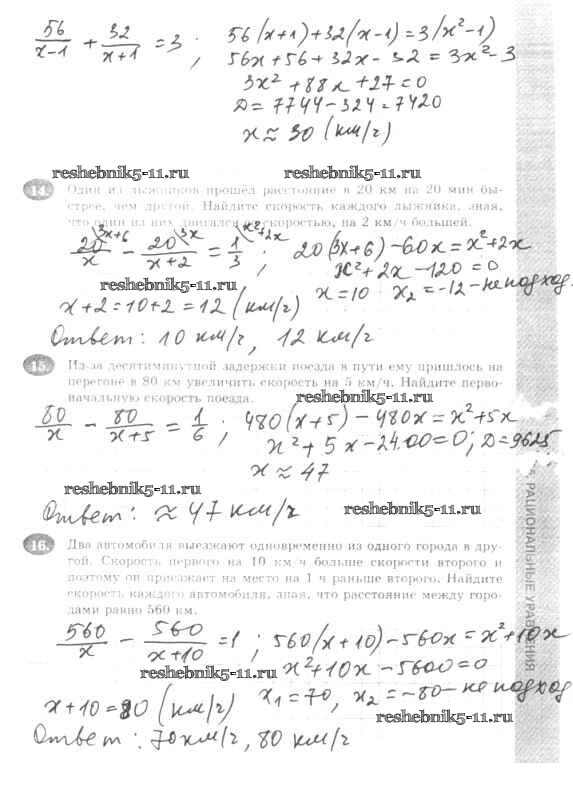 56/(x−1) + 32/(x+1) = 3 ; 56(x+1)+32(x−1)=3(x²−1)
56x+56+32x−32=3x²−3
3x²+88x+27=0
D=7744−324=7420
x≈30 (км/г)
reshebnik5-11.ru reshebnik5-11.ru
14. Один из лыжников прошёл расстояние в 20 км на 20 мин бы-
стрее, чем другой. Найдите скорость каждого лыжника, зная,
что один из них двигался со скоростью, на 2 км/ч большей.
20/x \3x+6 − 20/(x+2) \3x = 1/3 \x²+2x ; 20(3x+6)−60x=x²+2x
x²+2x−120=0
reshebnik5-11.ru
x=10 x₂=−12−не подход.
x+2=10+2=12 (км/г)
Ответ: 10 км/г, 12 км/г
15. Из-за десятиминутной задержки поезда в пути ему пришлось на
перегоне в 80 км увеличить скорость на 5 км/ч. Найдите перво-
начальную скорость поезда.
reshebnik5-11.ru
80/x − 80/(x+5) = 1/6 ; 480(x+5)−480x=x²+5x
x²+5x−2400=0; D=9625
x≈47
reshebnik5-11.ru
Ответ: ≈47 км/г
reshebnik5-11.ru
16. Два автомобиля выезжают одновременно из одного города в дру-
гой. Скорость первого на 10 км/ч больше скорости второго и
поэтому он приезжает на место на 1 ч раньше второго. Найдите
скорость каждого автомобиля, зная, что расстояние между горо-
дами равно 560 км.
560/x − 560/(x+10) =1 ; 560(x+10)−560x=x²+10x
x²+10x−5600=0
reshebnik5-11.ru
x₁=70, x₂=−80−не подход
x+10=80 (км/г)
reshebnik5-11.ru
Ответ: 70км/г, 80 км/г
РАЦИОНАЛЬНЫЕ УРАВНЕНИЯ